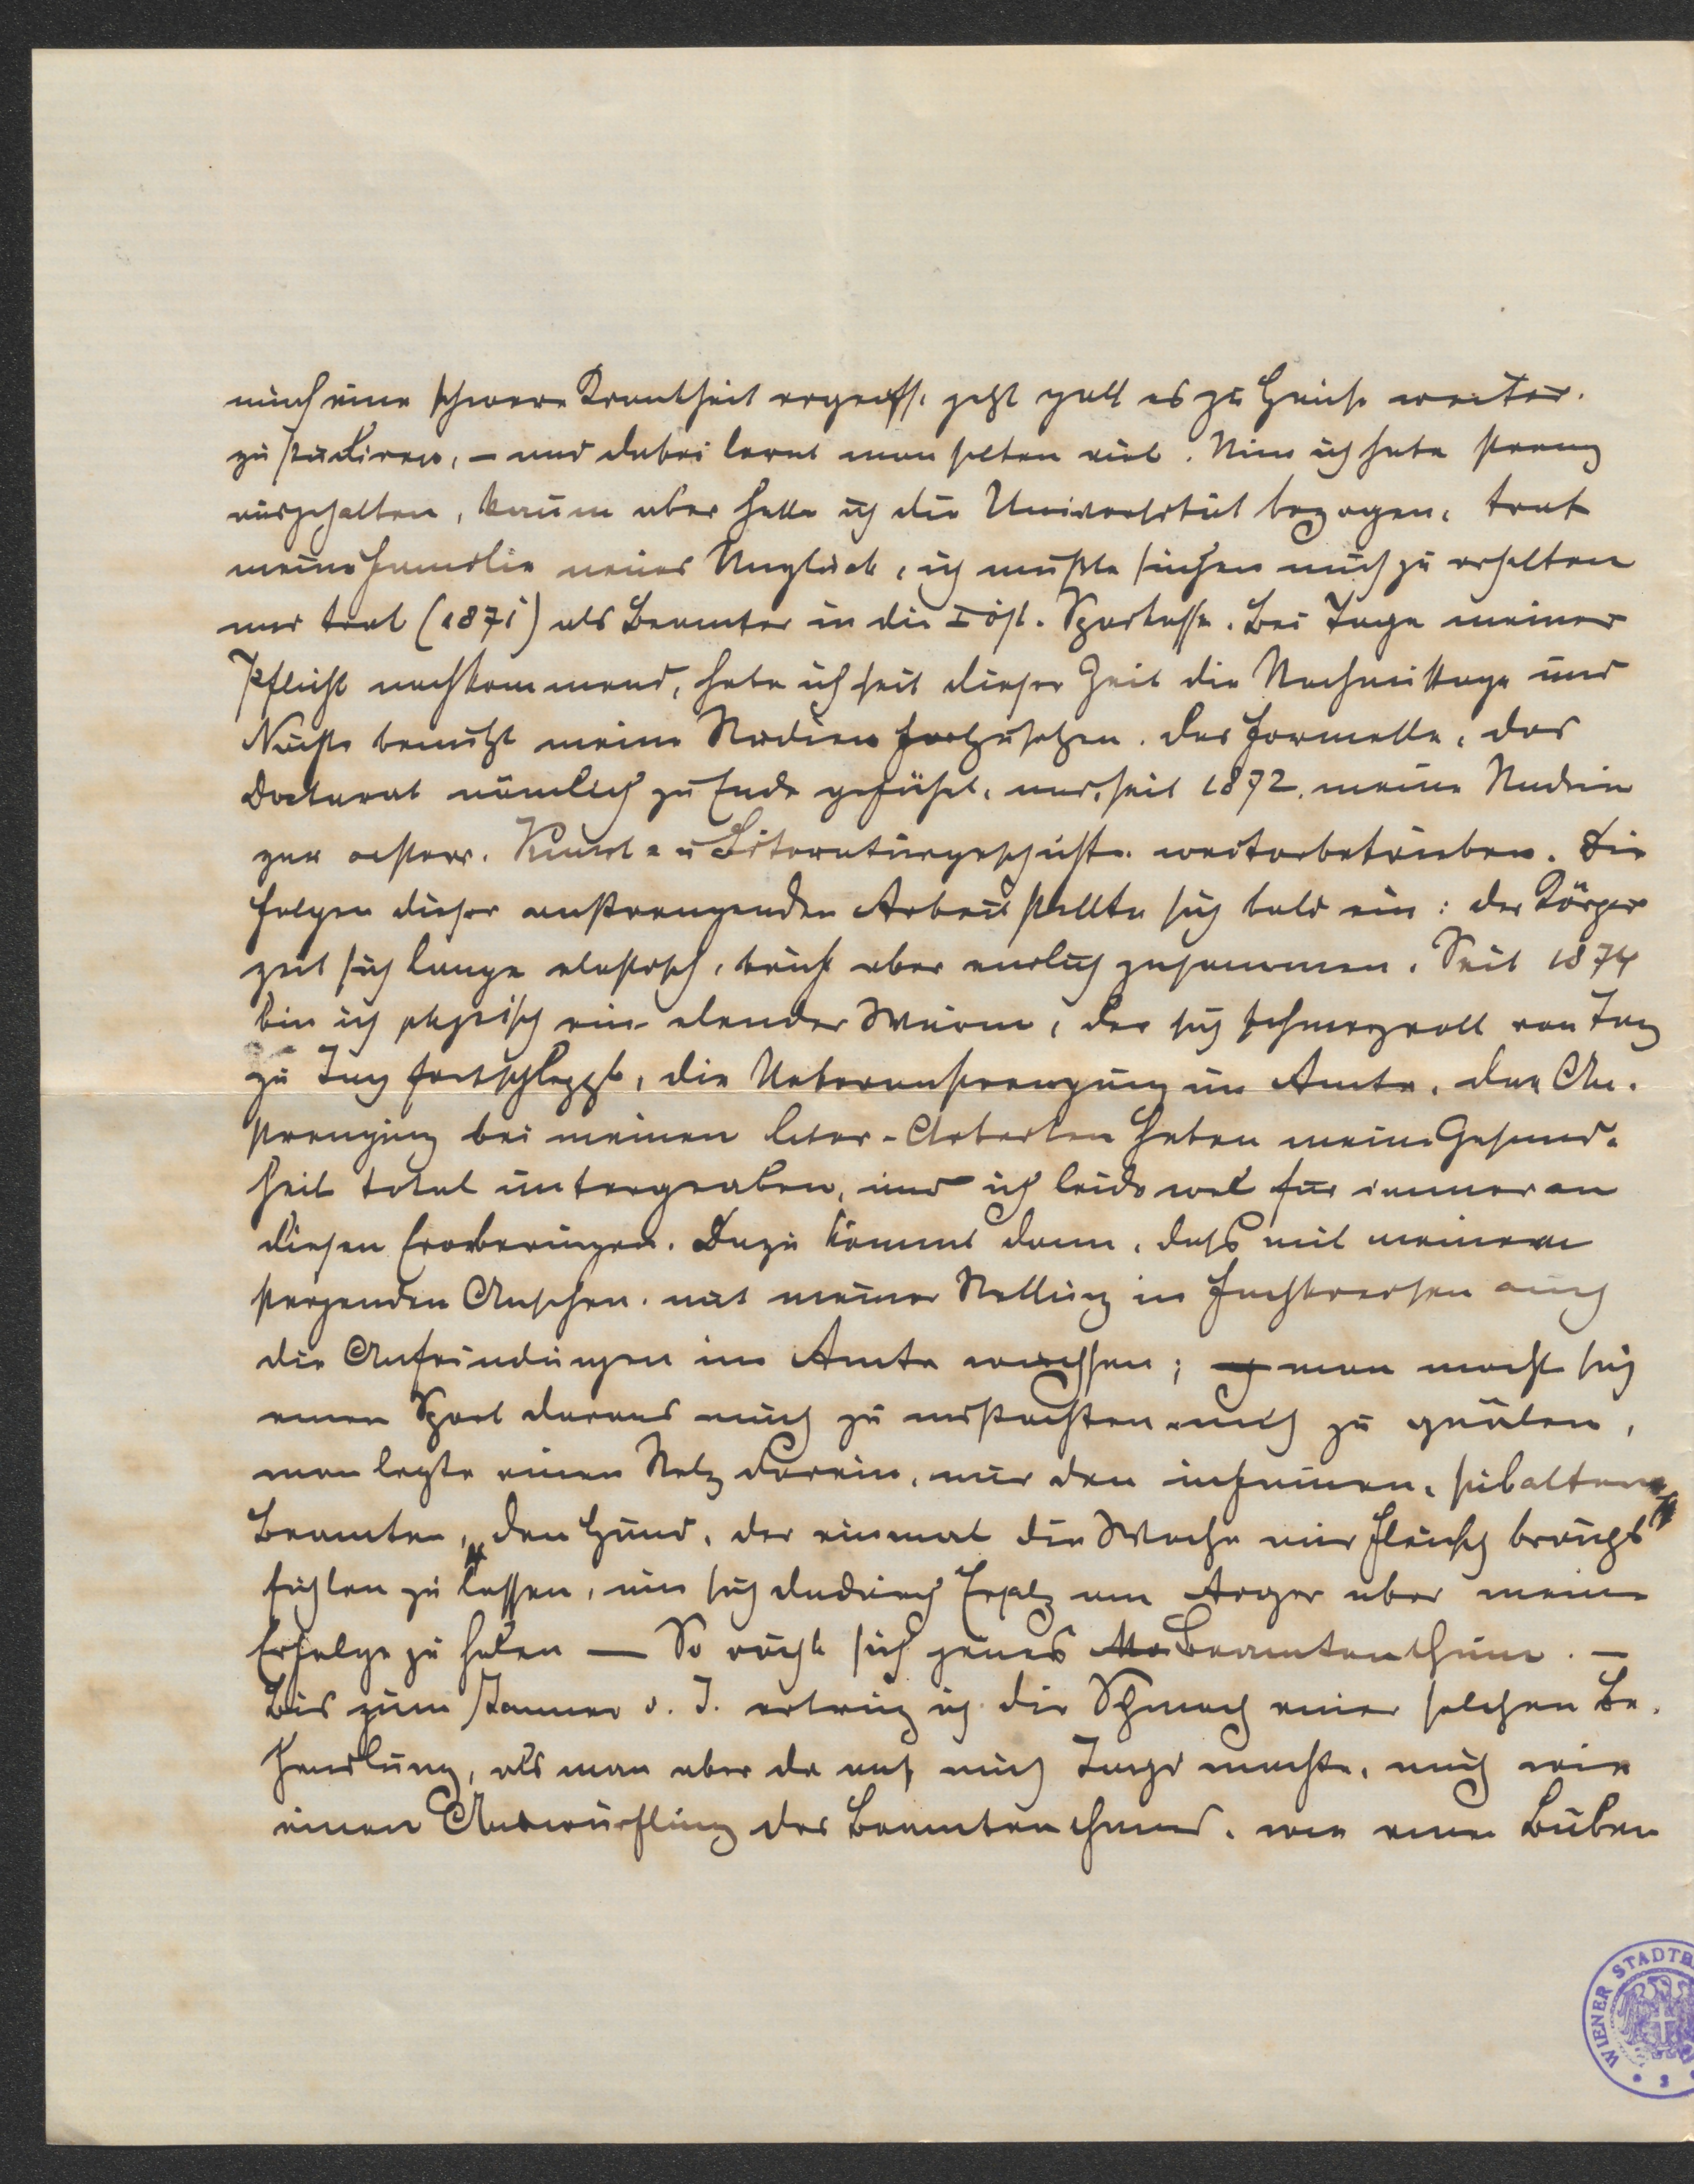 mich eine schwere Krankheit ergriff. jezt galt es zu Hause weiter.
zu studiren, – und dabei lernt man selten viel. Nun ich habe streng
ausgehalten, kaum aber hatte ich die Universität bezogen, traf
meine Familie neues Unglück, ich mußte suchen mich zu erhalten
und trat (1871) als Beamter in die I öst. Sparkasse. Bei Tage meiner
Pflicht nachkommend, habe ich seit dieser Zeit die Nachmittage und
Nächte benutzt meine Studien fortzusetzen. Das Formelle, das
Doctorat nämlich zu Ende geführt, und, seit 1872, meine Studien
zur oesterr. Kunst- u Literaturgeschichte weiterbetrieben. Die
Folgen dieser anstrengenden Arbeit stellten sich bald ein: der Körper
zeit sich lange elastisch, bricht aber endlich zusammen. Seit 1874
bin ich physisch ein elender Wurm, der sich schmerzvoll von Tag
zu Tag fortschleppt, die Ueberanstrengung im Amte, der An-
strengung bei meinen liter-Arbeiten haben meine Gesund-
heit total untergraben, und ich leide wol für immer an
diesen Eroberungen. Dazu kommt dann, daß mit meinem
steigenden Ansehen, mit meiner Stellung in Fachkreisen auch
die Anfeindungen im Amte wachsen; man macht sich
einen Sport daraus mich zu mißachten, mich zu quälen,
man legte einen Stolz darein, mir den infimen, subalternen
Beamten, „den Hund, der einmal die Woche nur Fleisch braucht"
fühlen zu lassen, um sich dadurch Ersatz am Arger über meine
Erfolge zu holen — So rächt sich jenes Beamtenthum. —
Bis zum Jänner d. J. ertrug ich die Schmach einer solchen Be-
handlung, als man aber da auf mich Jagd machte, mich wie
einen Auswürfling des Beamtenthums, wie einen Buben
WIENER STADTB